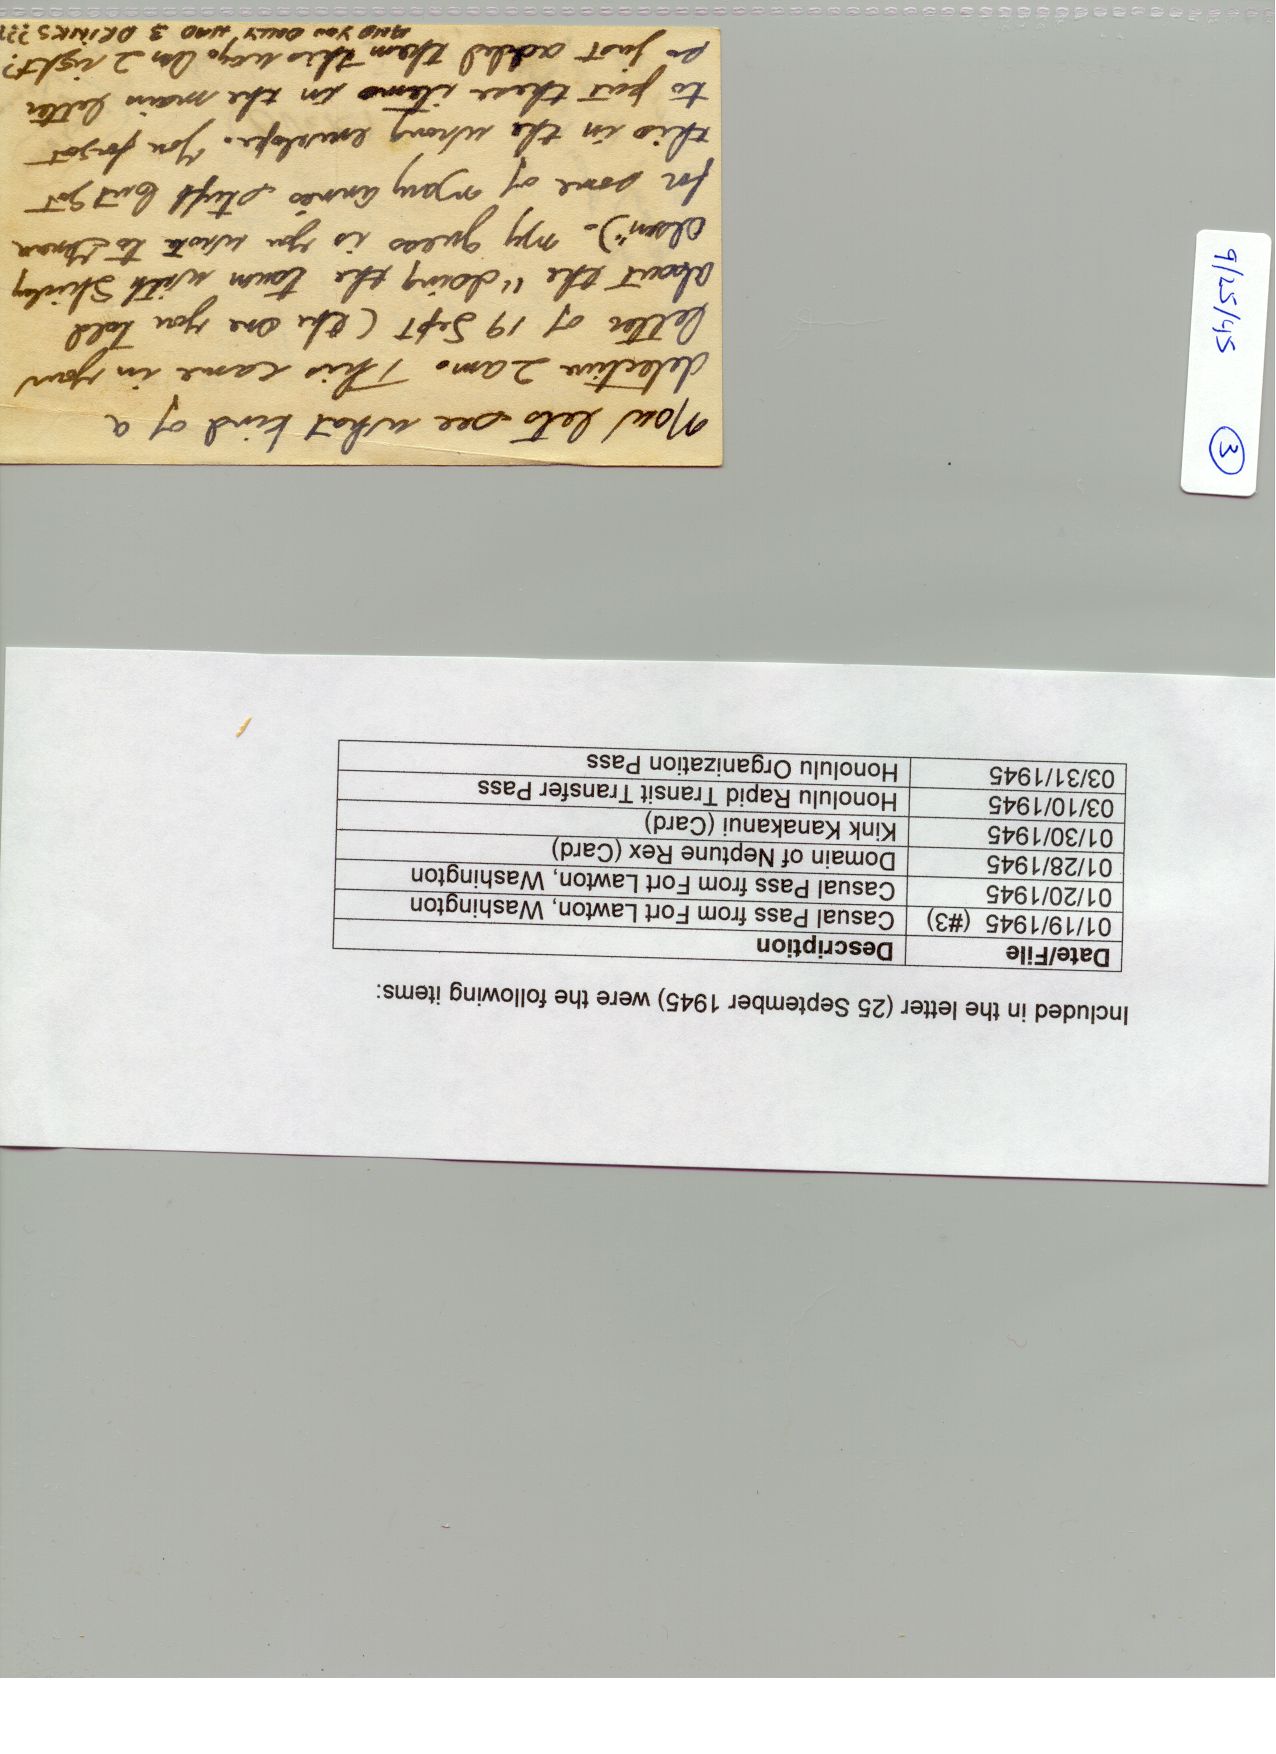 9/25/45 ③
Included in the letter (25 September 1945) were the following items:
Date/File Description
01/19/1945 (#3) Casual Pass from Fort Lawton, Washington
01/20/1945 Casual Pass from Fort Lawton, Washington
01/28/1945 Domain of Neptune Rex (Card)
01/30/1945 Kink Kanakanui (Card)
03/10/1945 Honolulu Rapid Transit Transfer Pass
03/31/1945 Honolulu Organization Pass
Now lets see what kind of a
detective I am. This came in your
letter of 19 Sept (the one you told
about the "doing the town with Shirley
Olsen"). My guess is you wrote to
for some of Mary Annes stuff but got
this in the wrong envelope. You forgot
to put these items in the main letter
so just added them this way. Am I right?
AND YOU ONLY HAD 3 DRINKS???